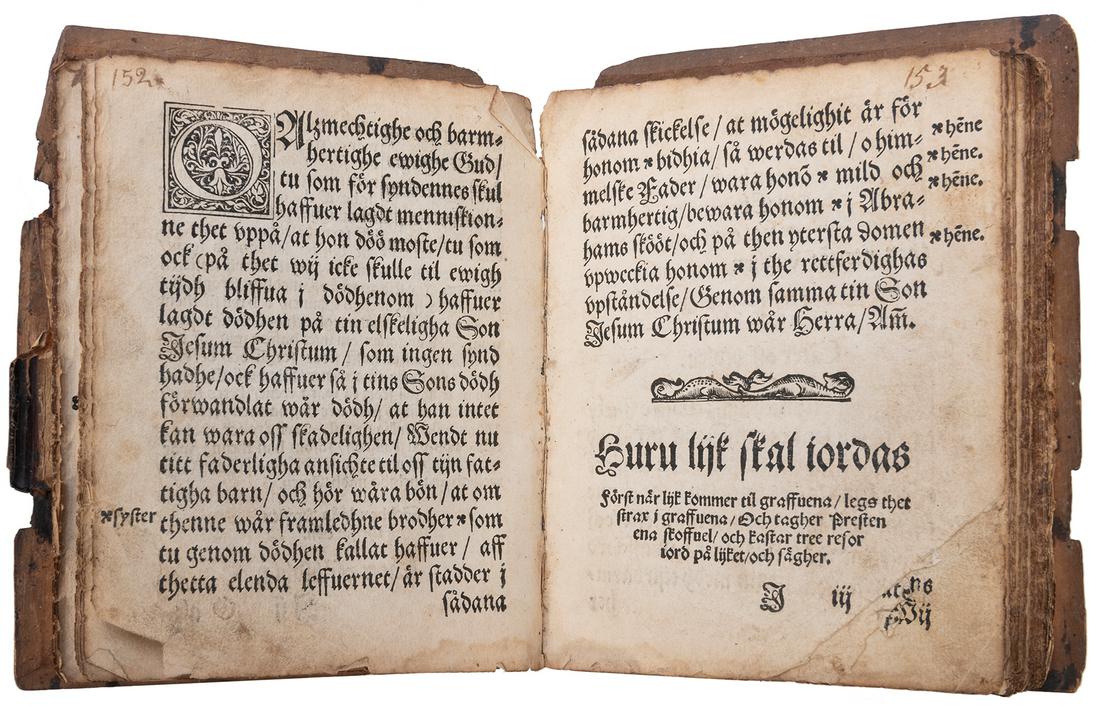 152
O Alzmechtighe och barm⸗
hertighe ewighe Gud/
tu som för syndennes skul
haffuer lagdt menniskion⸗
ne thet vppå/at hon döö moste/tu som
ock (på thet wij icke skulle til ewigh
tijdh bliffua j dödhenom ) haffuer
lagdt dödhen på tin elskeligha Son
Jesum Christum / som ingen synd
hadhe/ock haffuer så j tins Sons dödh
förwandlat wår dödh/ at han intet
kan wara oss skadelighen/ Wendt nu
titt faderligha ansichte til oss tijn fat⸗
tigha barn/ och hör wåra bön/at om
⁎syster thenne wår framledhne brodher⁎som
tu genom dödhen kallat haffuer / aff
thetta elenda leffuernet/är stadder j
sådana
153
sådana skickelse/at mögelighit är för
honom ⁎ bidhia/så werdas til/o him⸗ ⁎ hēne
melske Fader/wara honō ⁎ mild och ⁎ hēne.
barmhertig/bewara honom ⁎ j Abra⸗ ⁎ hēne.
hams skööt/och på then ytersta domen ⁎ hēne.
vpweckia honom ⁎ j the rettferdighas
vpståndelse/Genom samma tin Son
Jesum Christum wår Herra/Am̄.
Huru lijk skal iordas
Först när lijk kommer til graffuena/legs thet
strax j graffuena/Och tagher Presten
ena skoffuel/och kastar tree resor
iord på lijket/och sägher.
J iij
Wij